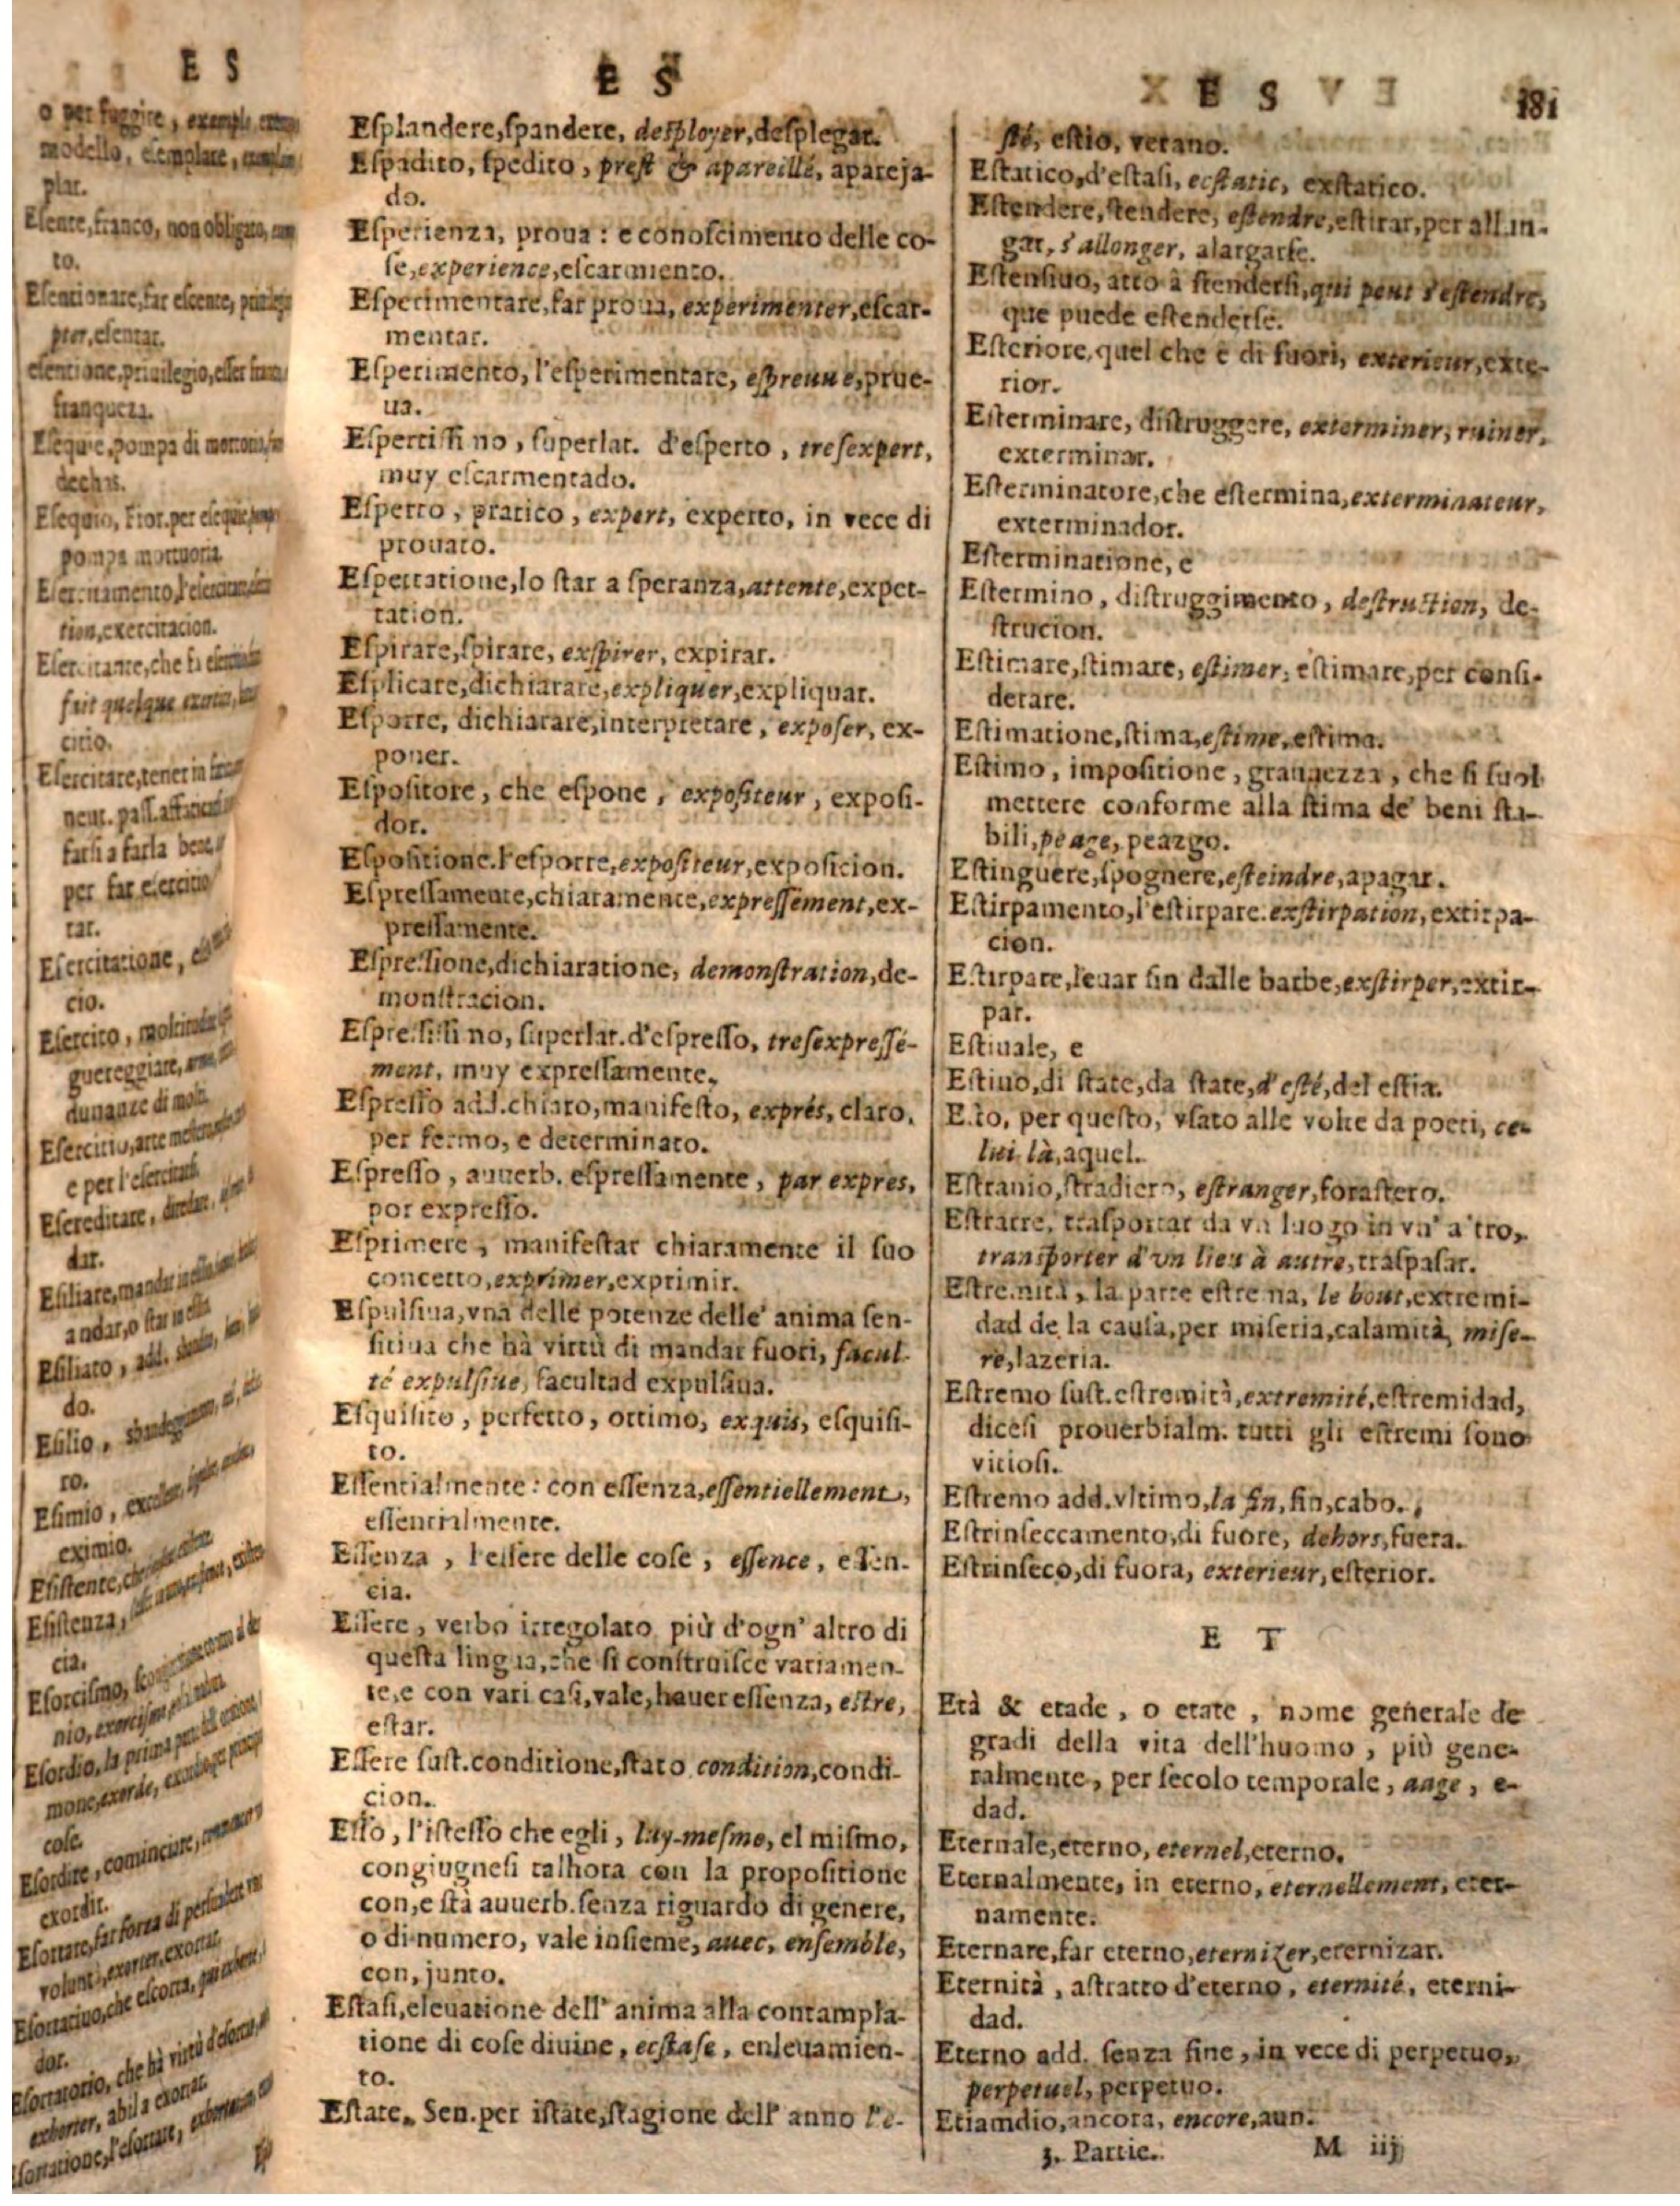 E S
o per fuggire, exemple
modello, esemplare,
plar.
Esente, franco, non obligato,
to.
Esentionare, far esente,
pter, esentar.
esentione, priuilegio, esser
franqueza.
Esequie, pompa di mortorio,
dechas.
Esequio, Fior. per esequie,
pompa mortuoria.
tion, exercitacion.
Esercitante, che si
fait quelque
citio.
Esercitare, tener in
neut. pass.
farsi a farla bene,
per far esercitio
tar.
Esercitatione,
cio.
Esercito,
guereggiare,
dunanze di
Esercitio, arte
e per l'esercitarsi.
Esereditare,
dar.
Esiliare, mandar
andar, o star in
Esiliato, add.
do.
Esilio,
ro.
Esimio,
eximio.
Esistente,
Esistenza,
cia.
Esorcismo,
nio,
Esordio, la prima
mone, exorde,
cose.
Esordire, cominciare,
exordir.
Esortare, far forza di
exorter, exortar.
Esortatiuo, che esorta,
dor.
Esortatorio, che hà virtù
exhorter, abil a exortar.
Esortatione, l'esortare,
E S
Esplandere, spandere, desployer, desplegar.
Espadito, spedito, prest & apareillé, apareja-
do.
Esperienza, proua: e conoscimento delle co-
se, experience, escarmento.
Esperimentare, far proua, experimenter, escar-
mentar.
Esperimento, l'esperimentare, espreuue, prue-
ua.
Espertissimo, superlat. d'esperto, tresexpert,
muy escarmentado.
Esperto, pratico, expert, experto, in vece di
prouato.
Espettatione, lo star a speranza, attente, expet-
tation.
Espirare, spirare, exspirer, expirar.
Esplicare, dichiarare, expliquer, expliquar.
Esporre, dichiarare, interpretare, exposer, ex-
poner.
Espositore, che espone, expositeur, exposi-
dor.
Espositione. l'esporre, expositeur, exposicion.
Espressamente, chiaramente, expressement, ex-
pressamente.
Espressione, dichiaratione, demonstration, de-
monstracion.
Espressissimo, superlat. d'espresso, tresexpressé-
ment, muy expressamente.
Espresso add. chiaro, manifesto, exprés, claro,
per fermo, e determinato.
Espresso, auuerb. espressamente, par expres,
por expresso.
Esprimere, manifestar chiaramente il suo
concetto, exprimer, exprimir.
Espulsiua, vna delle potenze delle' anima sen-
sitiua che hà virtù di mandar fuori, facul-
té expulsiue, facultad expulsiua.
Esquisito, perfetto, ottimo, exquis, esquisi-
to.
Essentialmente: con essenza, essentiellement,
essentialmente.
Essenza, l'essere delle cose, essence, essen-
cia.
Essere, verbo irregolato più d'ogn' altro di
questa lingua, che si construisce variamen-
te, e con vari casi, vale, hauer essenza, estre,
estar.
Essere sust. conditione, stato condition, condi-
cion.
Esso, l'istesso che egli, luy-mesme, el mismo,
congiugnesi talhora con la propositione
con, e stà auuerb. senza riguardo di genere,
o di numero, vale insieme, auec, ensemble,
con, junto.
Estasi, eleuatione dell' anima alla contampla-
tione di cose diuine, ecstase, enleuamien-
to.
Estate. Sen. per istate, stagione dell' anno l'e-
E S
181
sté, estio, verano.
Estatico, d'estasi, ecstatic, exstatico.
Estendere, stendere, estendre, estirar, per allun-
gar, s'allonger, alargarse.
Estensiuo, atto à stendersi, qui peut s'estendre,
que puede estenderse.
Esteriore, quel che è di fuori, exterieur, exte-
rior.
Esterminare, distruggere, exterminer, ruiner,
exterminar.
Esterminatore, che estermina, exterminateur,
exterminador.
Esterminatione, e
Estermino, distruggimento, destruction, de-
strucion.
Estimare, stimare, estimer, estimare, per consi-
derare.
Estimatione, stima, estime, estima.
Estimo, impositione, grauezza, che si suol
mettere conforme alla stima de' beni sta-
bili, peage, peazgo.
Estinguere, spognere, esteindre, apagar.
Estirpamento, l'estirpare. exstirpation, extirpa-
cion.
Estirpare, leuar sin dalle barbe, exstirper, extir-
par.
Estiuale, e
Estiuo, di state, da state, d'esté, del estia.
Esto, per questo, vsato alle volte da poeti, ce-
lui là, aquel.
Estranio, stradiero, estranger, forastero.
Estrarre, trasportar da vn luogo in vn' a'tro,
transporter d'vn lieu à autre, traspasar.
Estremità, la parte estrema, le bout, extremi-
dad de la causa, per miseria, calamità, mise-
re, lazeria.
Estremo sust. estremità, extremité, estremidad,
dicesi prouerbialm. tutti gli estremi sono
vitiosi.
Estremo add. vltimo, la fin, fin, cabo.
Estrinseccamento, di fuore, dehors, fuera.
Estrinseco, di fuora, exterieur, esterior.
E T
Età & etade, o etate, nome generale de
gradi della vita dell'huomo, più gene-
ralmente, per secolo temporale, aage, e-
dad.
Eternale, eterno, eternel, eterno.
Eternalmente, in eterno, eternellement, eter-
namente.
Eternare, far eterno, eternizer, eternizar.
Eternità, astratto d'eterno, eternité, eterni-
dad.
Eterno add. senza fine, in vece di perpetuo,
perpetuel, perpetuo.
Etiamdio, ancora, encore, aun.
3. Partie. M iij